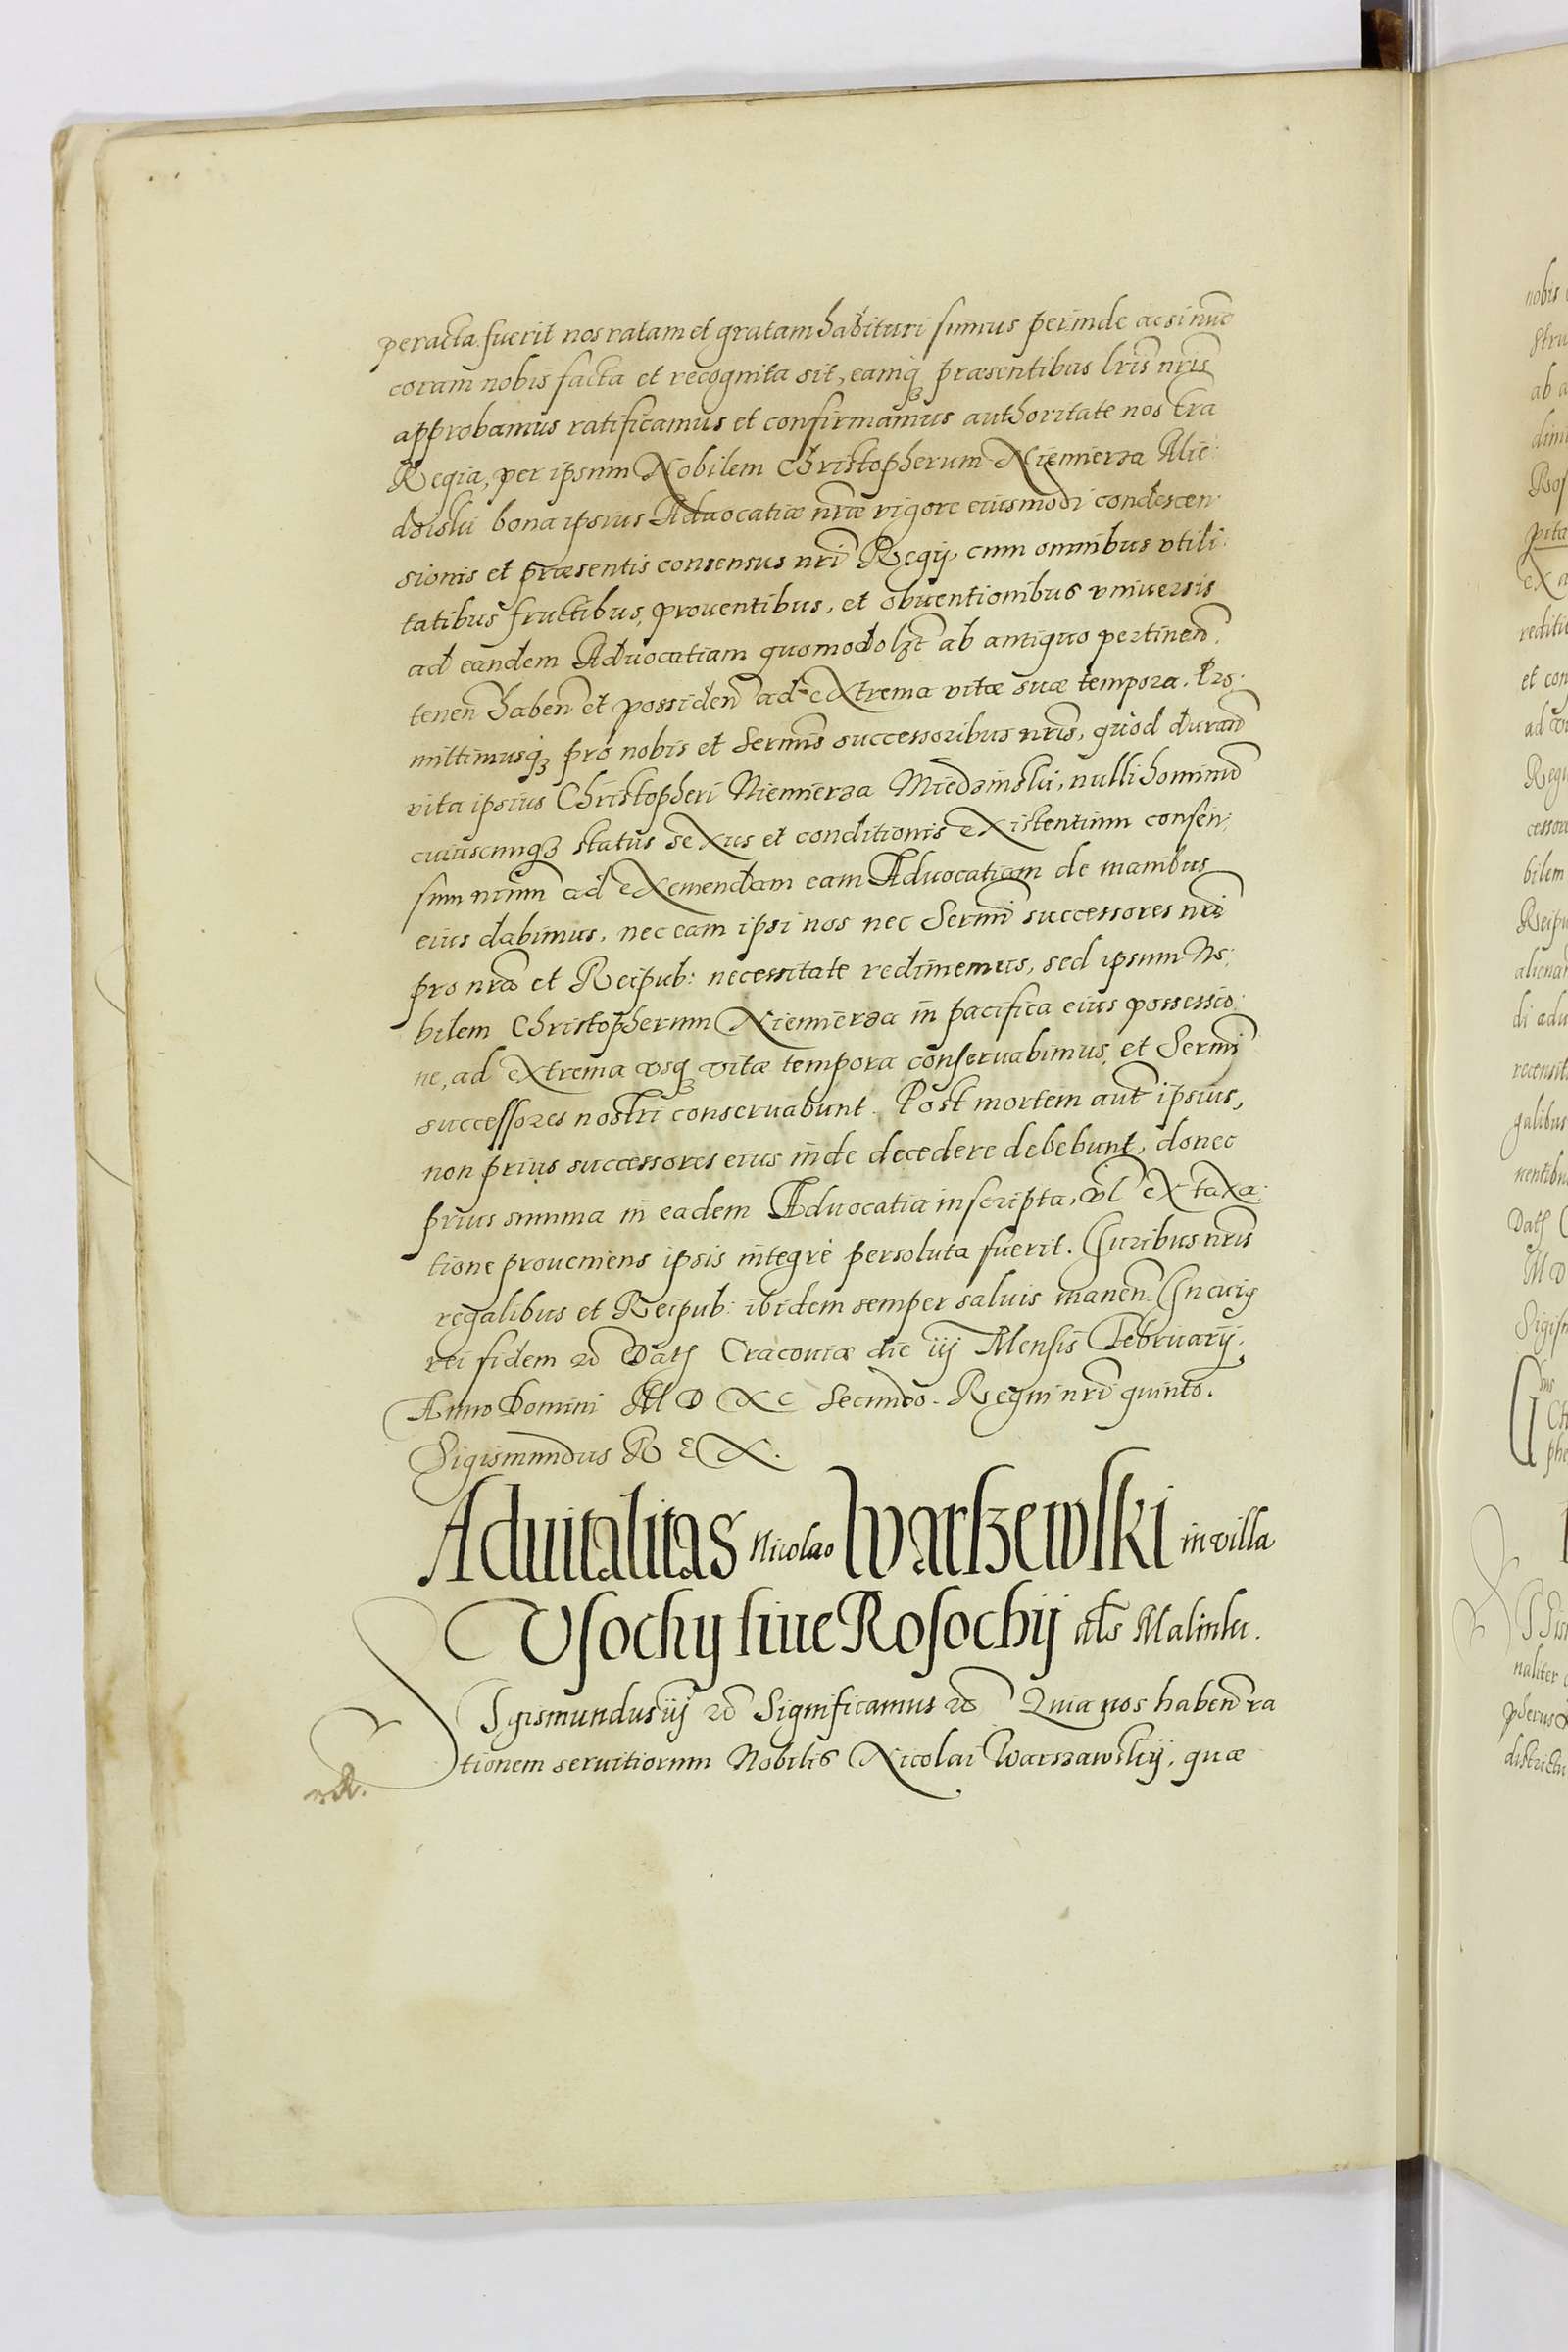 peracta fuerit nos ratam et gratam habituri sumus perinde ac si nunc
coram nobis facta et recognita sit, eamq₃ præsentibus lris nris
approbamus ratificamus et confirmamus authoritate nostra
Regia, per ipsum Nobilem Christopherum Niemierza Mie
dziski bona ipsius Aduocatiæ nræ vigore eiusmodi condescen
sionis et præsentis consensus nri Regij, cum omnibus vtili
tatibus fructibus, prouentibus, et obuentionibus vniuersis
ad eandem Aduocatiam quomodolzt ab antiquo pertinen
tenen haben et possiden ad extrema vitæ suæ tempora. Pro
mittimusq₃ pro nobis et Sermis successoribus nris, quòd duran
vita ipsius Christopheri Niemierza Miedzinski, nulli hominu
cuiuscunq₃ status sexus et conditionis existentium consen
sum nrum ad exemendam eam Aduocatiam de manibus
eius dabimus, nec eam ipsi nos nec Sermi successores nri
pro nra et Reipub: necessitate redimemus, sed ipsum No
bilem Christopherum Niemierza in pacifica eius possessio
ne, ad extrema vsq₃ vitæ tempora conseruabimus, et Sermi
successores nostri conseruabunt. Post mortem aut ipsius,
non prius successores eius inde decedere debebunt, donec
prius summa in eadem Aduocatia inscripta, vl ex taxa
tione proueniens ipsis integrè persoluta fuerit. Iuribus nris
regalibus et Reipub: ibidem semper saluis manen. In cuiq
rei fidem &c Dat Cracouiæ die iij Mensis Februarij.
Anno Domini M D XC Secundo. Regni nri quinto.
Sigismundus REX.
Aduitalitas Nicolao Warszewski in villa
Vsochy siue Rosochij als Malinki.
Sigismundus iij &c Significamus &c Quia nos haben ra
tionem seruitiorum Nobilis Nicolai Warszawskij, quæ